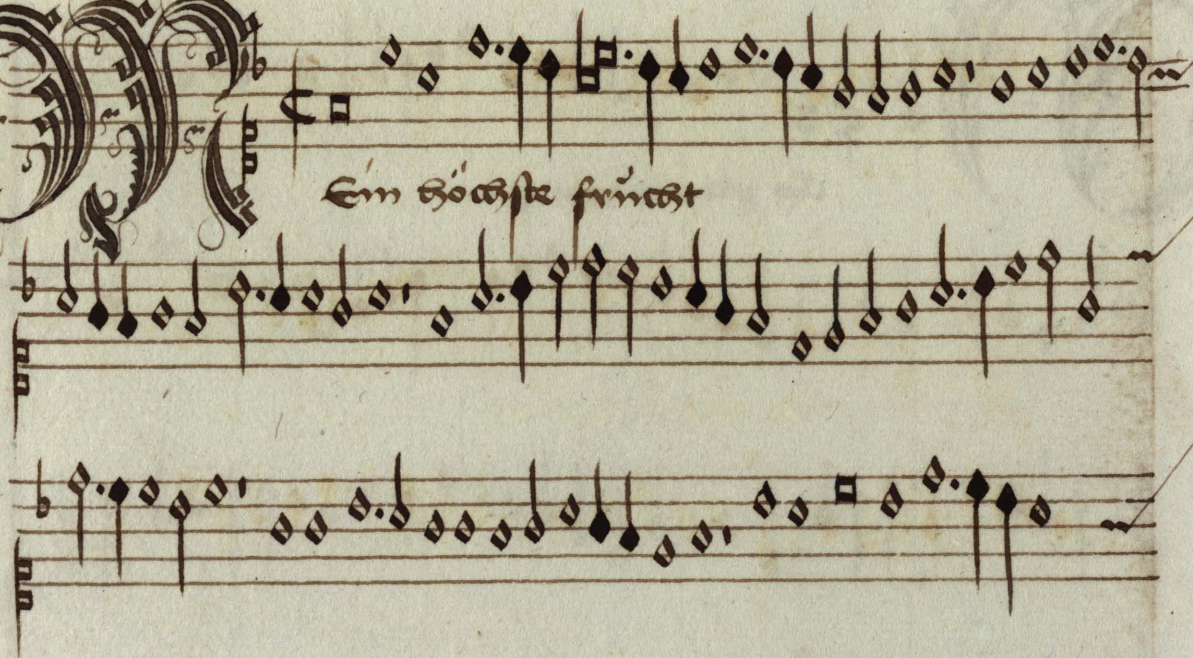 Mein höchste frücht